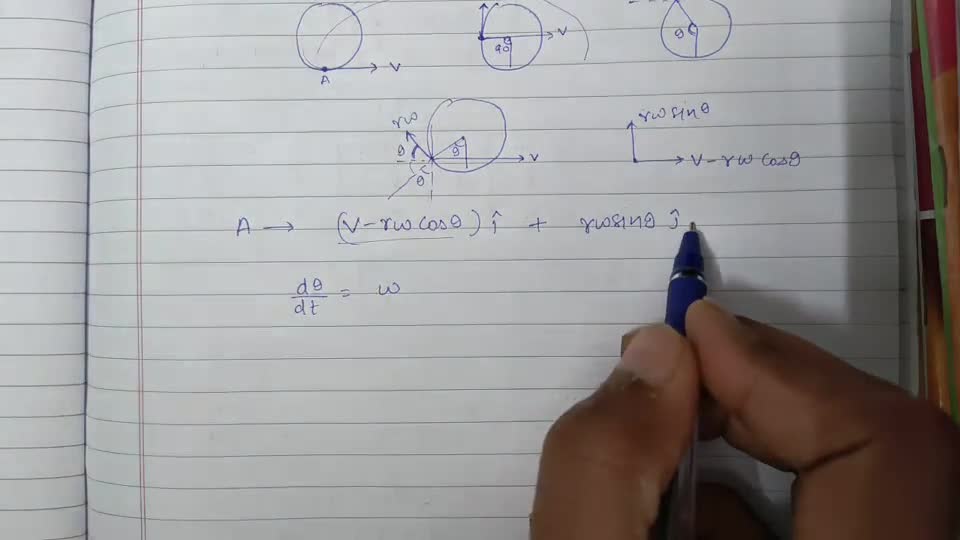 A
V
90
V
θ
rω
θ
θ
θ
V
rω sinθ
V - rω cosθ
A → (V - rω cosθ) î + rω sinθ ĵ
dθ/dt = ω